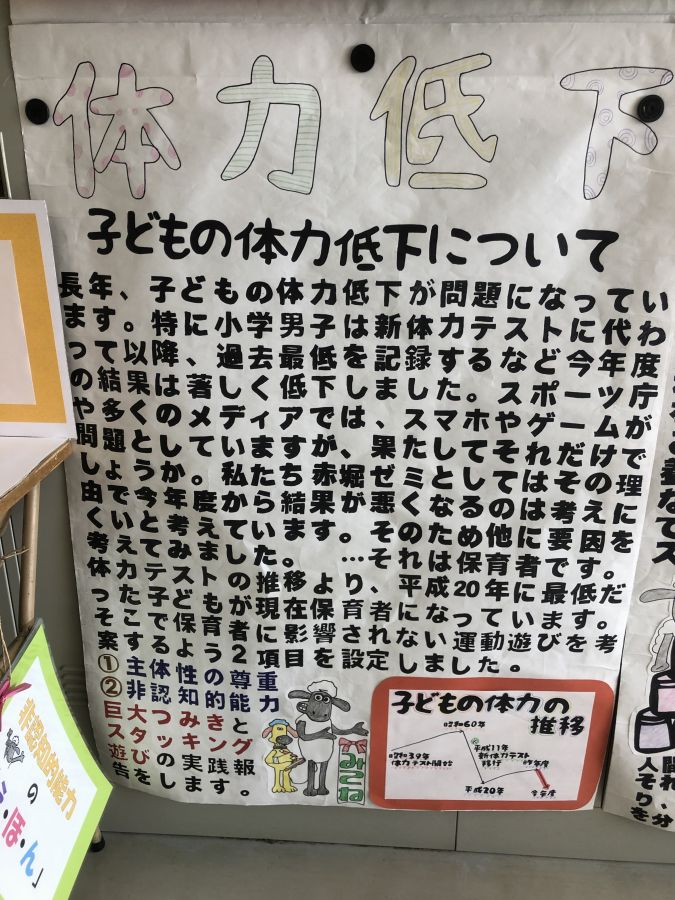 体力低下
子どもの体力低下について
長年、子どもの体力低下が問題になってい
ます。特に小学男子は新体力テストに代わ
って以降、過去最低を記録するなど今年度
の結果は著しく低下しました。スポーツ庁
や多くのメディアでは、スマホやゲームが
問題としていますが、果たしてそれだけで
しょうか。私たち赤堀ゼミとしてはその理
由で今年度から結果が悪くなるのは考えに
くいと考えています。…その他に要因を
考えてみました。それは保育者です。
体力テストの推移より、平成20年に最低だ
った子どもが現在保育者になっています。
そこで保育者に影響されない運動遊びを考
案するよう2項目を設定しました。
①主体性の尊重
②非認知的能力
巨大つみきと
スタッキング
遊びの実践報
告をします。
みこね
子どもの体力の
推移
昭和60年
平成11年
新体力テスト
移行
昭和39年
体力テスト開始
昨年度
平成20年
今年度
の
ほ・ん」